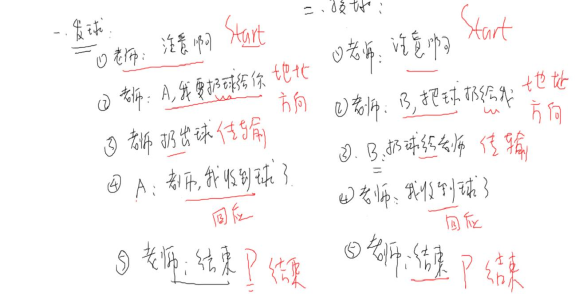 一、发球:
①老师: 注意时间 Start
②老师: A,我要扔球给你 地址方向
③老师扔出球 传输
④A: 老师,我收到球了 回应
⑤老师: 结束 P 结束
二、接球:
①老师: 注意时间 Start
②老师: B,把球扔给我 地址方向
③B: 扔球给老师 传输
④老师: 我收到球了 回应
⑤老师: 结束 P 结束